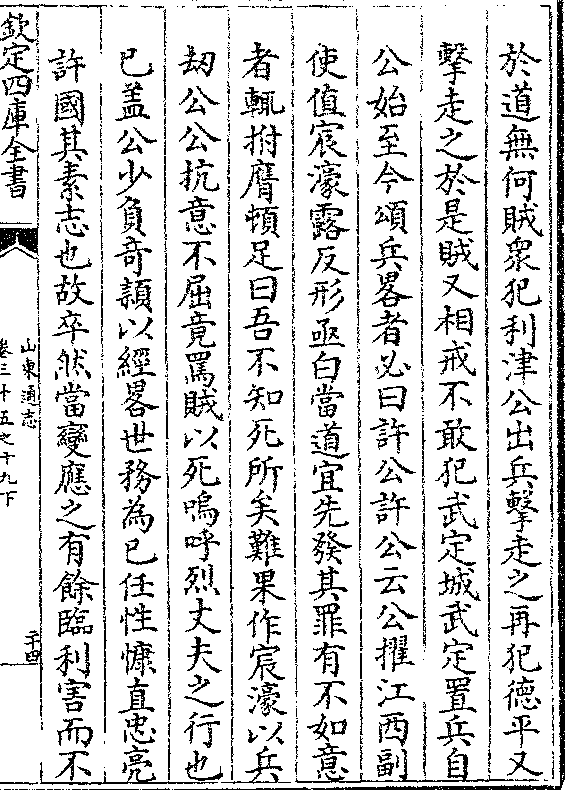 於道無何賊衆犯利津公出兵擊走之再犯德平又
擊走之於是賊又相戒不敢犯武定城武定置兵自
公始至今頌兵畧者必曰許公許公云公擢江西副
使值宸濠露反形亟白當道宜先發其罪有不如意
者輒拊膺頓足曰吾不知死所矣難果作宸濠以兵
刼公公抗意不屈竟罵賊以死嗚呼烈丈夫之行也
已盖公少負竒頴以經畧世務為已任性慷直忠亮
許國其素志也故卒然當變應之有餘臨利害而不
欽定四庫全書
山東通志
卷三十五之十九下